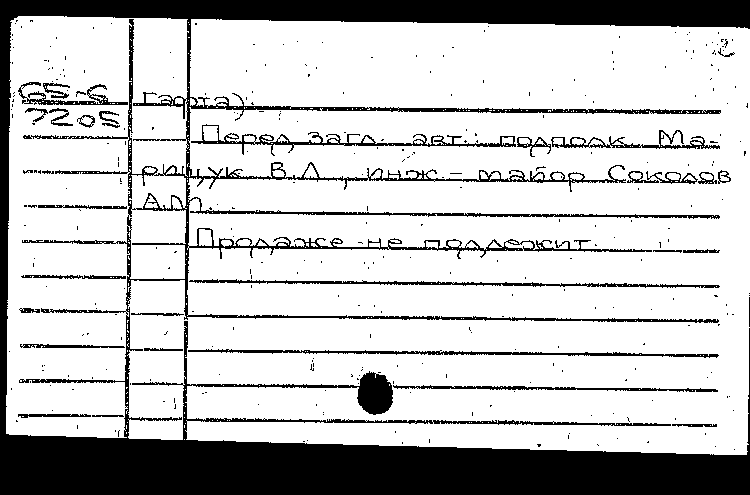 2
65-6 гарта).
7205 Перед загл. авт.: подполк. Ма-
рищук В.Л., инж-майор Соколов
А.М.
Продаже не подлежит.